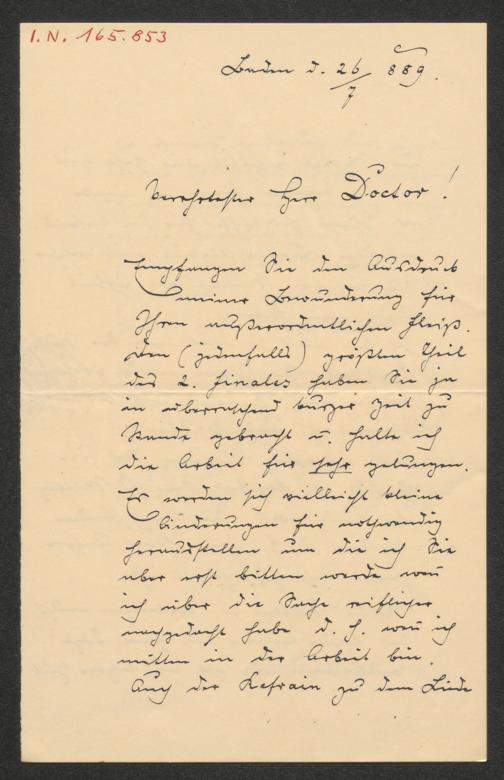 I. N. 165.853
Baden d. 26/7 889.
Verehrtester Herr Doctor!
Empfangen Sie den Ausdruck
meiner Bewunderung für
Ihren außerordentlichen Fleiß.
Den (jedenfalls) größten Theil
des 2. Finales haben Sie ja
in überraschend kurzer Zeit zu
Stande gebracht u. halte ich
die Arbeit für sehr gelungen.
Es werden sich vielleicht kleine
Änderungen für nothwendig
herausstellen um die ich Sie
aber erst bitten werde wenn
ich über die Sache reiflicher
nachgedacht habe d. h. wenn ich
mitten in der Arbeit bin.
Auch der Refrain zu dem Liede